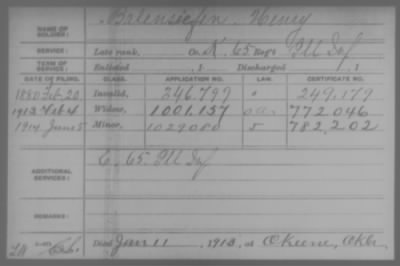 NAME OF SOLDIER: Balensiefen, Henry
SERVICE: Late rank, Co. K, 65 Reg't Ill Inf
TERM OF SERVICE: Enlisted , 1 Discharged , 1
DATE OF FILING. CLASS. APPLICATION NO. LAW. CERTIFICATE NO.
1880 Feb. 20 Invalid, 246.797 249.179
1913 Feb 4 Widow, 1001.157 772.046
1914 June 5 Minor, 1029080 5 782.202
ADDITIONAL SERVICES: E. 65. Ill Inf
REMARKS:
Died Jan 11, 1913, at Okeene, Okla.